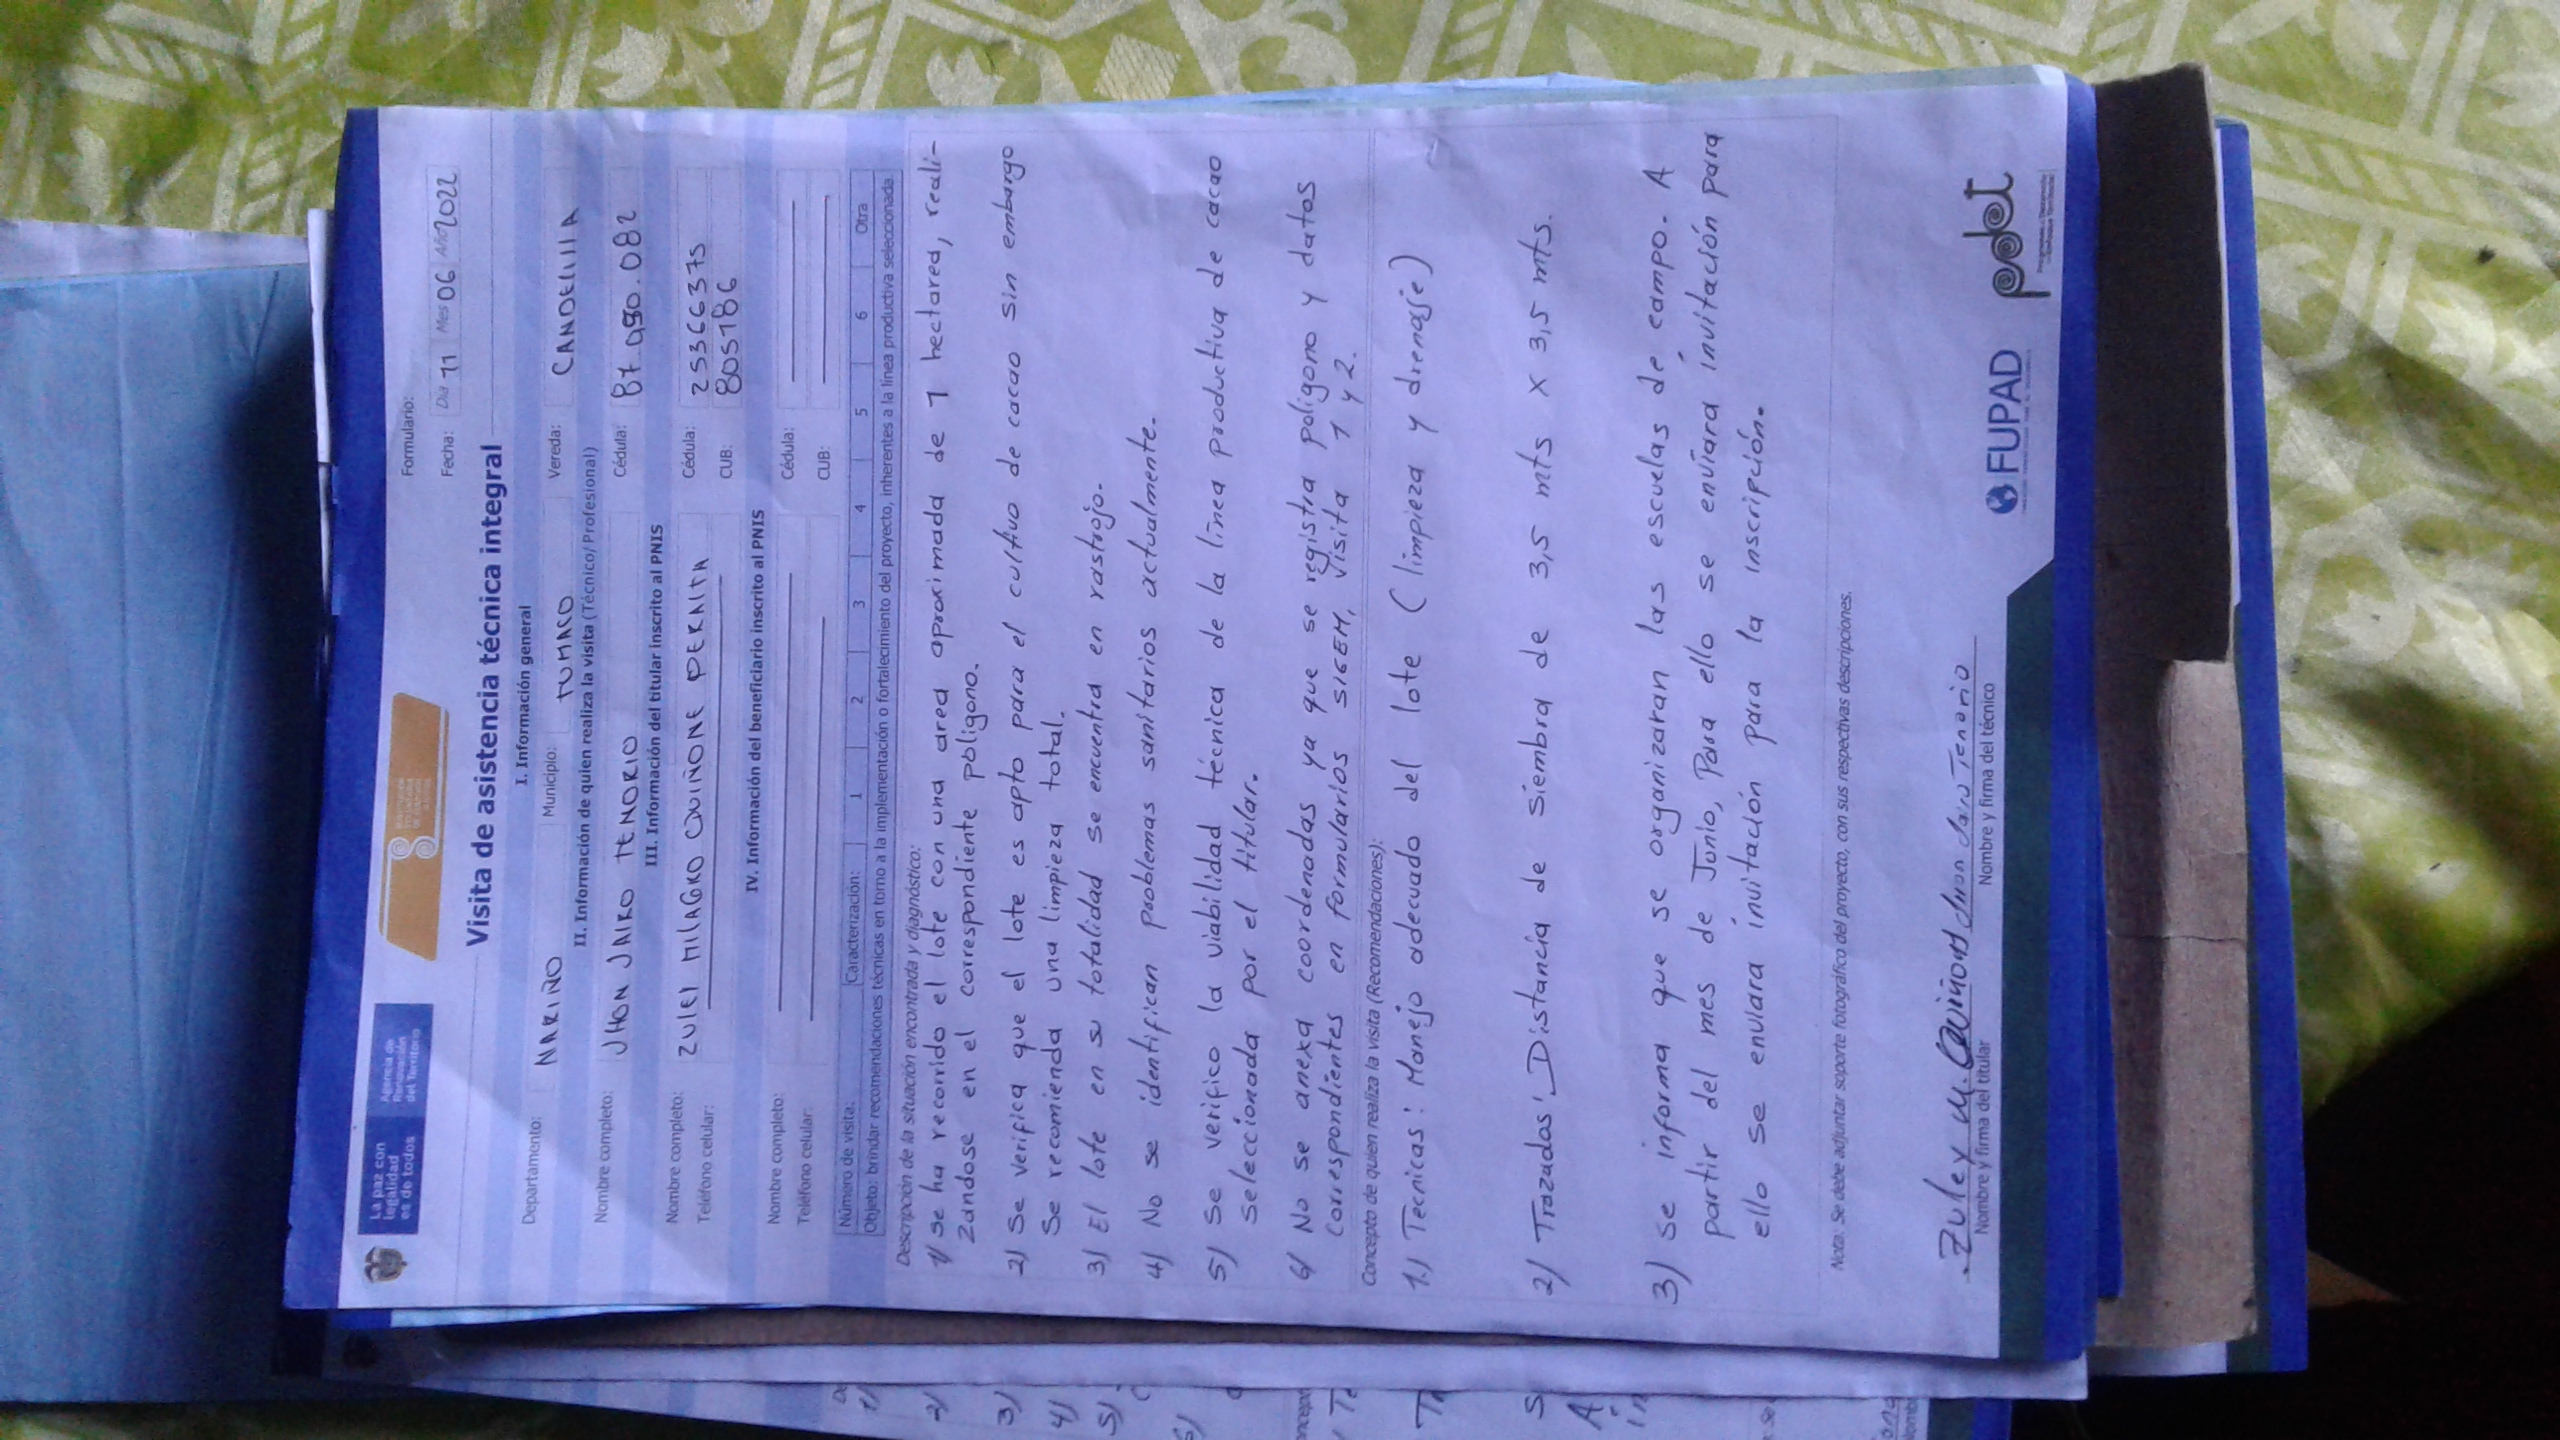 La paz con
legalidad
es de todos
Agencia de
Renovación
del Territorio
Formulario:
Fecha: Día 11 Mes 06 Año 2022
Visita de asistencia técnica integral
I. Información general
Departamento: NARIÑO Municipio: TUMACO Vereda: CANDELILLA
II. Información de quien realiza la visita (Técnico/Profesional)
Nombre completo: JHON JAIRO TENORIO Cédula: 87.090.082
III. Información del titular inscrito al PNIS
Nombre completo: ZULEI MILAGRO QUIÑONE PERALTA Cédula: 25366375
Teléfono celular: CUB: 805186
IV. Información del beneficiario inscrito al PNIS
Nombre completo: Cédula:
Teléfono celular: CUB:
Número de visita: Caracterización: 1 2 3 4 5 6 Otra
Objeto: brindar recomendaciones técnicas en torno a la implementación o fortalecimiento del proyecto, inherentes a la línea productiva seleccionada
Descripción de la situación encontrada y diagnóstico:
1) Se ha recorrido el lote con una area aproximada de 1 hectarea, reali-
zandose en el correspondiente poligono.
2) Se verifica que el lote es apto para el cultivo de cacao sin embargo
Se recomienda una limpieza total.
3) El lote en su totalidad se encuentra en rastrojo.
4) No se identifican problemas sanitarios actualmente.
5) Se verifico la viabilidad técnica de la línea productiva de cacao
seleccionada por el titular.
6) No se anexa coordenadas ya que se registra poligono y datos
correspondientes en formularios SIGEM, visita 1 y 2.
Concepto de quien realiza la visita (Recomendaciones):
1.) Tecnicas: Manejo adecuado del lote (limpieza y drenaje)
2) Trazados: Distancia de siembra de 3,5 mts x 3,5 mts.
3) Se informa que se organizaran las escuelas de campo. A
partir del mes de Junio, Para ello se enviara invitación para
ello se enviara invitación para la inscripción.
Nota: Se debe adjuntar soporte fotográfico del proyecto, con sus respectivas descripciones.
Zuley M. Quiñones Jhon Jairo Tenorio
Nombre y firma del titular Nombre y firma del técnico
FUPAD pdet